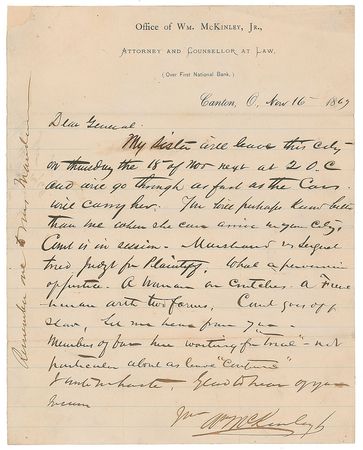 Office of Wm. McKinley, Jr.,
Attorney and Counsellor at Law,
(Over First National Bank.)
Canton, O, Nov 16 1869
Dear General.
My Sister will leave this City
on thursday the 18" of Nov next at 2 O.C
and will go through as fast as the Cars
will carry her. You will perhaps know better
than me when she can arrive in your City.
Court is in session. vs
tried, Judgt for Plaintiff, What a perversion
of justice. A woman on crutches. A
woman with two forms, Court goes off
slow, Let me hear from you
Members of bar here working for "trial" - not
particular about as have "
I write in haste, Glad to hear of your
success
Yours
Wm McKinley Jr
Remember me to Miss